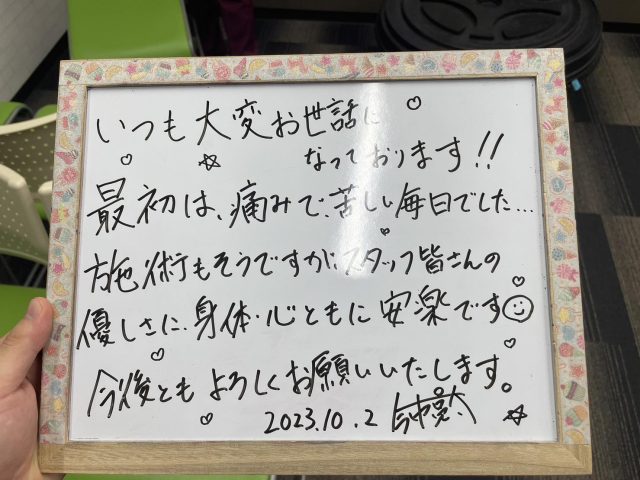 いつも大変お世話に
なっております!!
最初は、痛みで、苦しい毎日でした...
施術もそうですが、スタッフ皆さんの
優しさに、身体・心ともに安楽です
今後ともよろしくお願いいたします。
2023.10.2